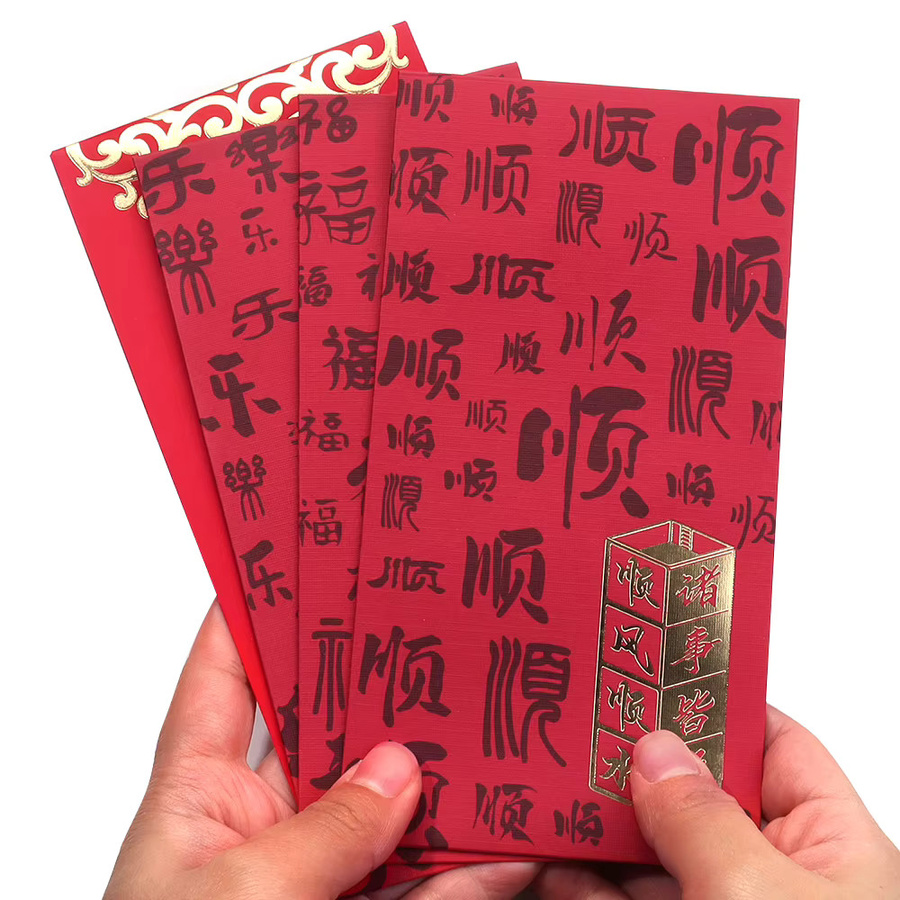 乐 樂
樂 乐
乐
乐
樂
乐
福
福
福
福
福
福
顺 顺 顺 顺
顺 顺 順 顺
顺 顺 顺
顺 顺 顺 順
顺 顺 顺
順 顺 顺 顺
顺 顺
顺 順
顺 顺 顺
顺风顺水
诸事皆